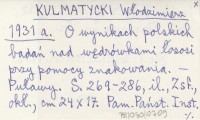 KULMATYCKI Włodzimierz
1931 a. O wynikach polskich
badań nad wędrówkami łososi
przy pomocy znakowania. —
Puławy. S. 269-286, il., Zsf.,
okł., cm 24 x 17. Pam. Państ. Inst.